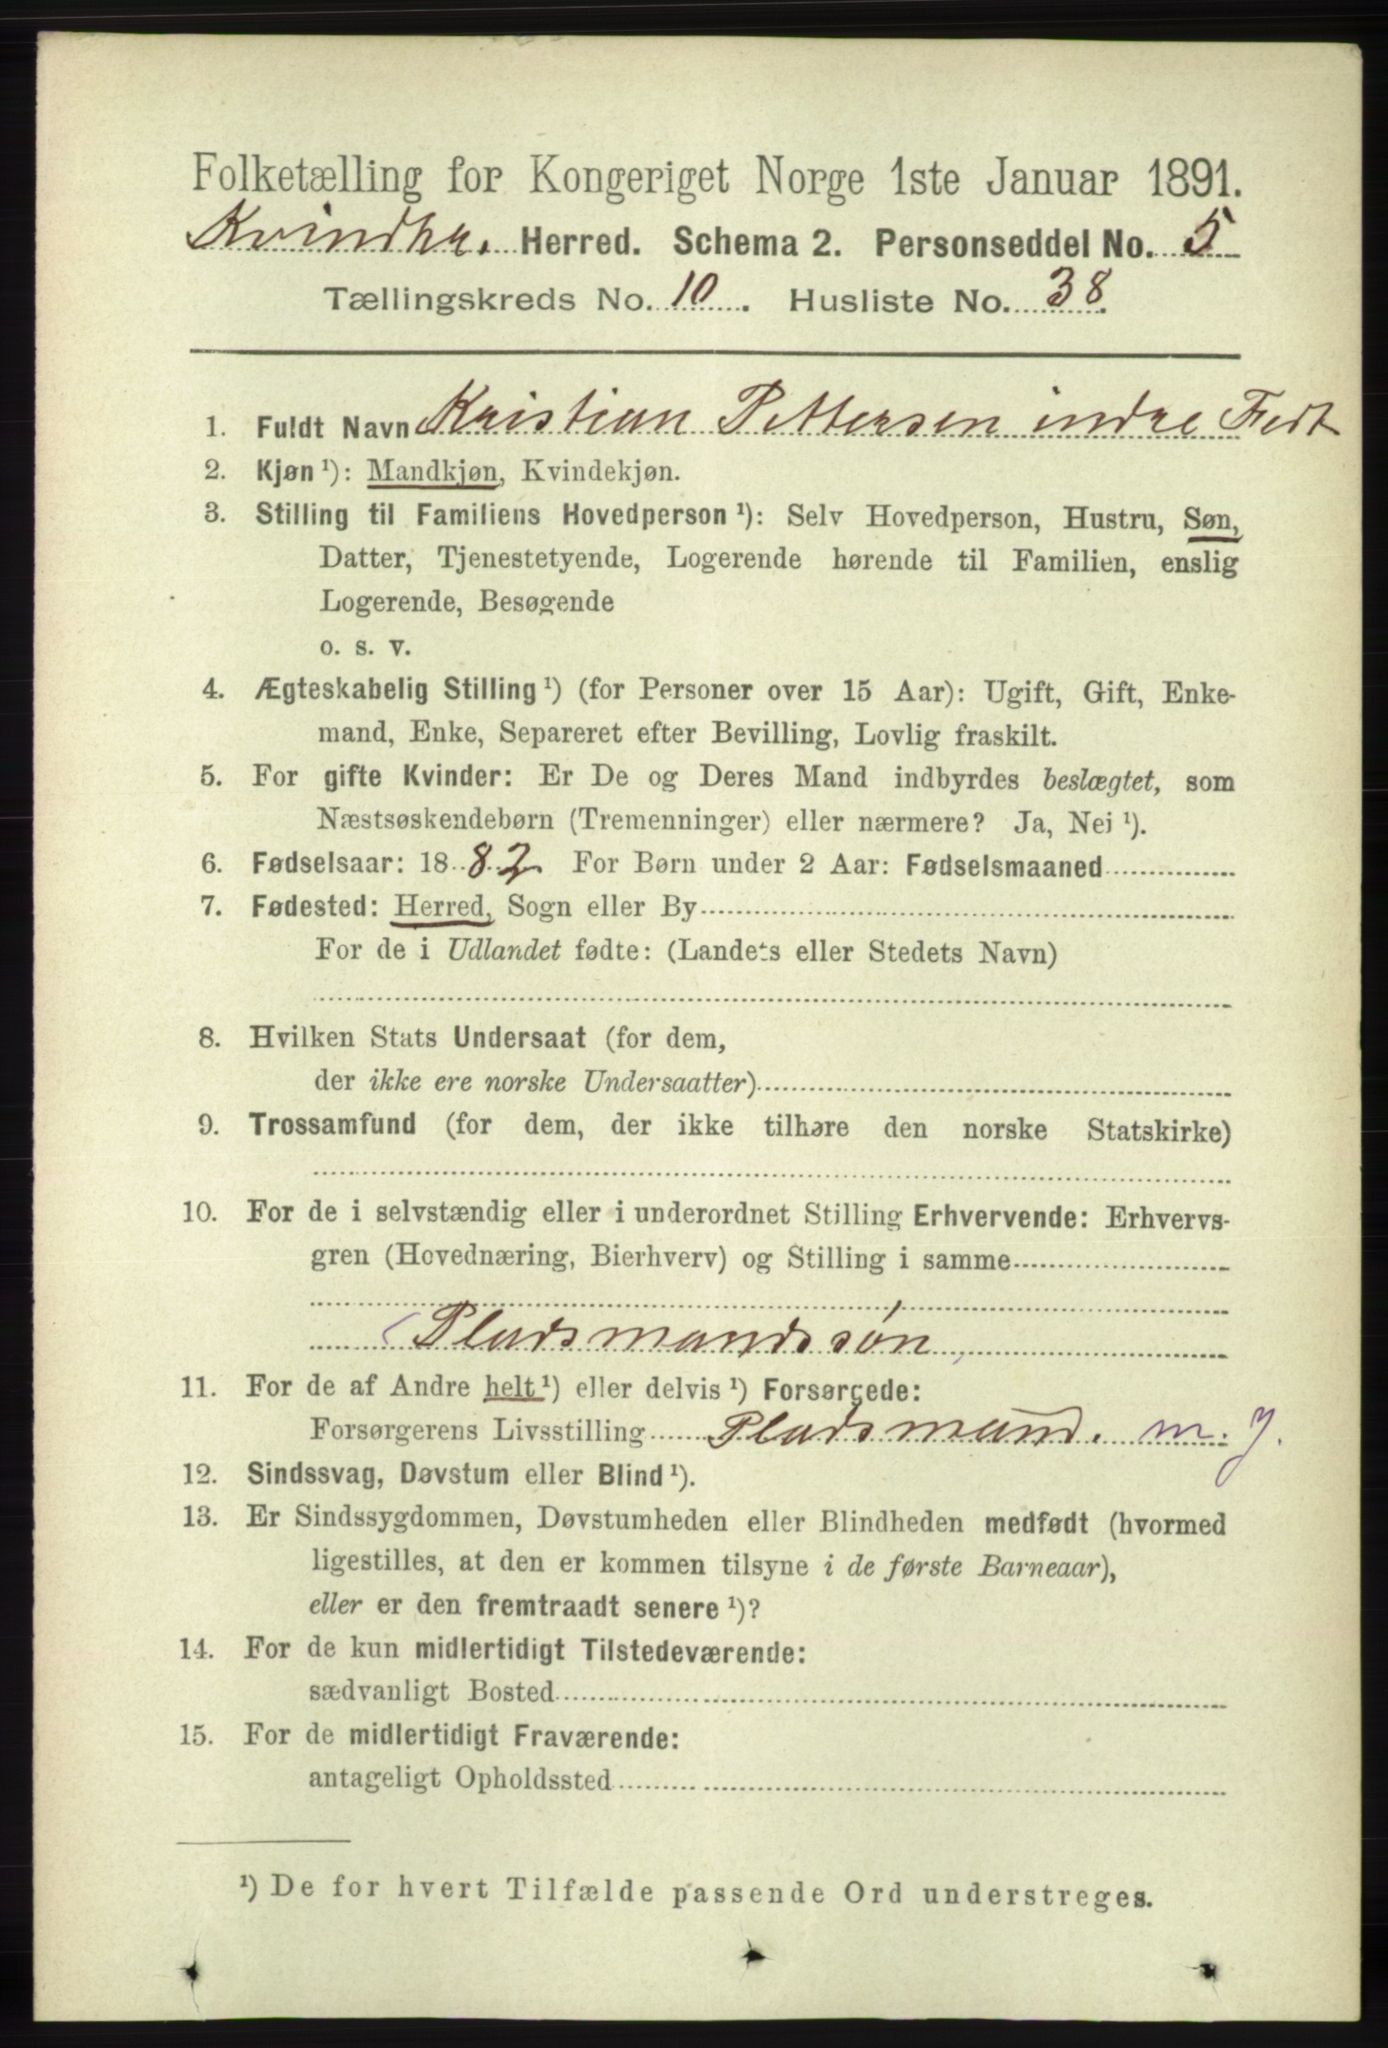 Folketælling for Kongeriget Norge 1ste Januar 1891.
Kvindhr. Herred. Schema 2. Personseddel No. 5
Tællingskreds No. 10. Husliste No. 38.
1. Fuldt Navn Kristian Pettersen indre Fedt
2. Kjøn ¹): Mandkjøn, Kvindekjøn.
3. Stilling til Familiens Hovedperson ¹): Selv Hovedperson, Hustru, Søn,
Datter, Tjenestetyende, Logerende hørende til Familien, enslig
Logerende, Besøgende
o. s. v.
4. Ægteskabelig Stilling ¹) (for Personer over 15 Aar): Ugift, Gift, Enke-
mand, Enke, Separeret efter Bevilling, Lovlig fraskilt.
5. For gifte Kvinder: Er De og Deres Mand indbyrdes beslægtet, som
Næstsøskendebørn (Tremenninger) eller nærmere? Ja, Nei ¹).
6. Fødselsaar: 1882 For Børn under 2 Aar: Fødselsmaaned
7. Fødested: Herred, Sogn eller By
For de i Udlandet fødte: (Landets eller Stedets Navn)
8. Hvilken Stats Undersaat (for dem,
der ikke ere norske Undersaatter)
9. Trossamfund (for dem, der ikke tilhøre den norske Statskirke)
10. For de i selvstændig eller i underordnet Stilling Erhvervende: Erhvervs-
gren (Hovednæring, Bierhverv) og Stilling i samme
(Pladsmandssøn
11. For de af Andre helt ¹) eller delvis ¹) Forsørgede:
Forsørgerens Livsstilling Pladsmand. m. J.
12. Sindssvag, Døvstum eller Blind ¹).
13. Er Sindssygdommen, Døvstumheden eller Blindheden medfødt (hvormed
ligestilles, at den er kommen tilsyne i de første Barneaar),
eller er den fremtraadt senere ¹)?
14. For de kun midlertidigt Tilstedeværende:
sædvanligt Bosted
15. For de midlertidigt Fraværende:
antageligt Opholdssted
¹) De for hvert Tilfælde passende Ord understreges.